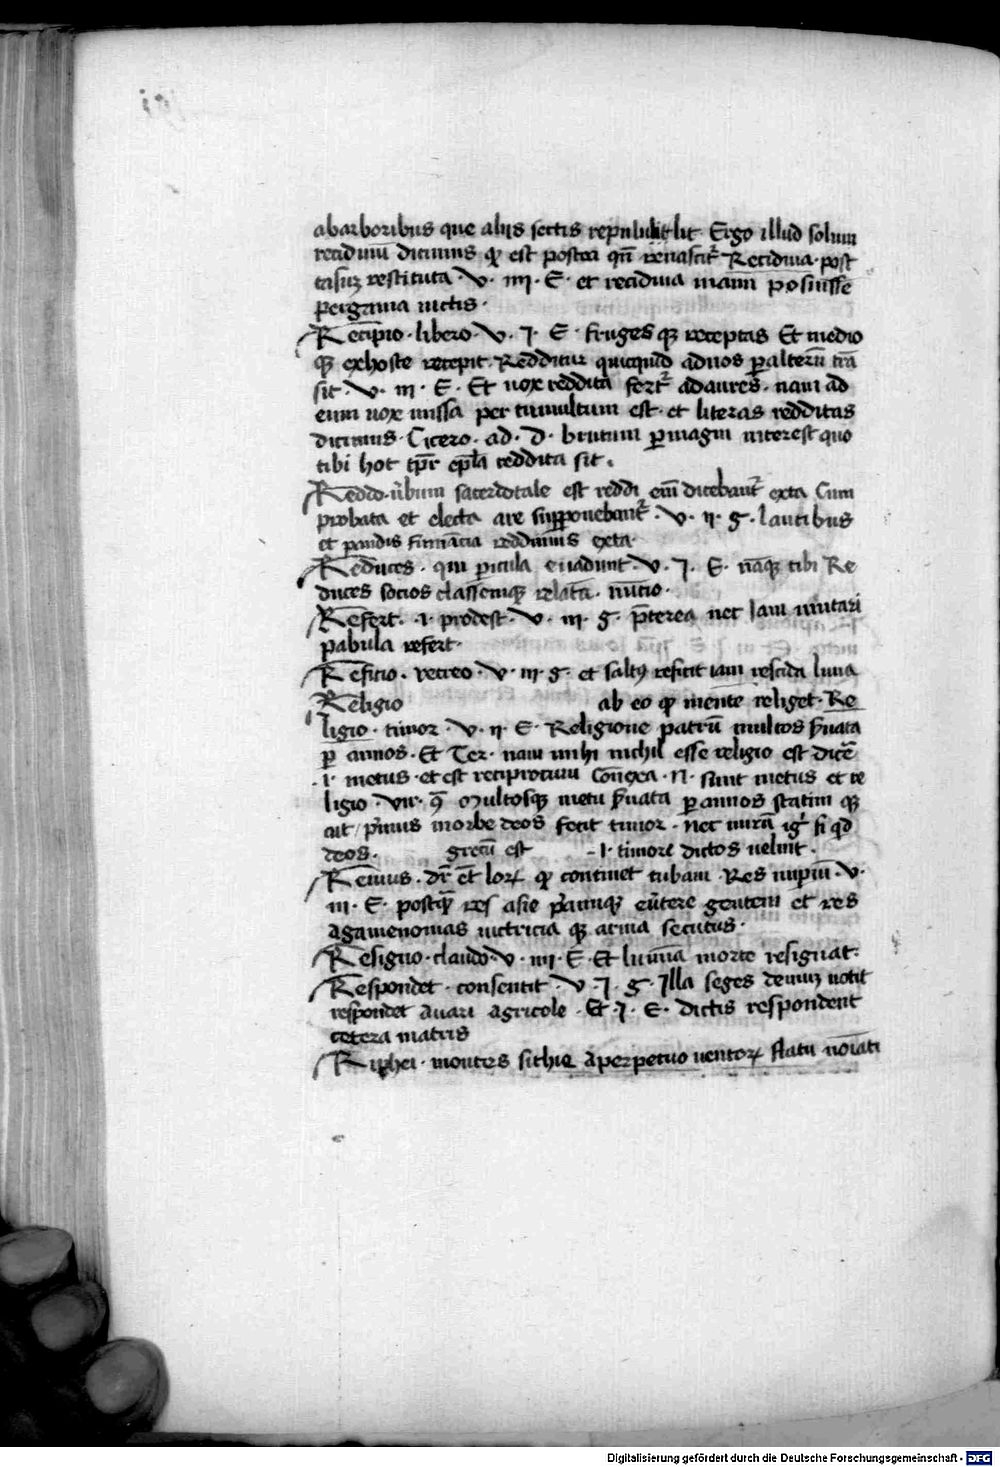 abarboribus que aliis sectis repululūt lit Ergo illud solum
recidiuū dicimus qͥ est postea qn̄ renascit᷑ Recidiua · post
casuȝ restituta · V · iiij · E · et recidiua manu posuisse
pergama uictis ·
Recipio · libero · V · J · E · fruges qȝ receptas Et medio
qȝ exhoste recepit · Redditur quicquid aduos ꝑalterū trā
sit · V · iij · E · Et uox reddita fert᷑ adaures · nam ad
eum uox missa per tumultum est · et literas redditas
dicimus · Cicero · ad · D · brutum ꝑmagni interest quo
tibi hoc tꝑe epl̄a reddita sit ·
Reddo · ūbum sacerdotale est reddi em̄ dicebant᷑ exta Cum
probata et electa are supponebant᷑ · V · ij · g · lancibus
et pandis fumācia reddimus exta ·
Reduces · qui ꝑicula euadunt · V · J · E · nāqȝ tibi Re
duces socios classemqȝ relatā · nūcio ·
Refert · i · prodest · V · iij · g · p̄terea nec Iam mutari
pabula refert ·
Reficio · recreo · V · iij · g · et saltꝰ reficit iam roscida luna
Religio ab eo qͥ mente religet · Re
ligio · timor · V · ij · E · Religione patrū multos ẜuata
ꝑ annos · Et Ter · nam mihi nichil esse religio est dicē
· i · metus · et est reciprocum Conuexa · N · sunt metus et re
ligio · Vir · qͣ Multosqȝ metu ẜuata ꝑ annos statim qȝ
ait / p̄mus in orbe deos fecit timor · nec mirū igͥ si qd
deos · grecū est · i · timore dictos uelint ·
Remus · dr̄ et̄ loꝝ qͥ continet tubam · Res imꝑiū · V ·
iij · E · postqͣ res asie pͥamiqȝ eūtere gentem et res
agamenonias uictricia qȝ arma secutus ·
Resigno · claudo · V · iiij · E · Et lumīa morte resignat :
Respondet · consentit · V · J · g · Illa seges demuȝ uotis
respondet auari agricole · Et · J · E · dictis respondent
cetera matris
Riphei · montes sithie aperpetuo uentoꝝ flatu noīati
Digitalisierung gefördert durch die Deutsche Forschungsgemeinschaft - DFG